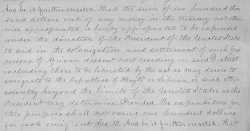 And be it further enacted, That the sum of one hundred thou
sand dollars out of any money in the Treasury not other
wise appropriated, is hereby appropriated to be expended
under the direction of the President of the United States
to aid in the colonization and settlement of such free
persons of African descent now residing in said District
including those to be liberated by this act as may desire to
emigrate to the Republics of Hayti or Liberia, or such other
country beyond the limits of the United States as the
President may determine: Provided, The expenditure for
this purpose shall not exceed one hundred dollars
for each emigrant. Sec. 12. And be it further enacted, That